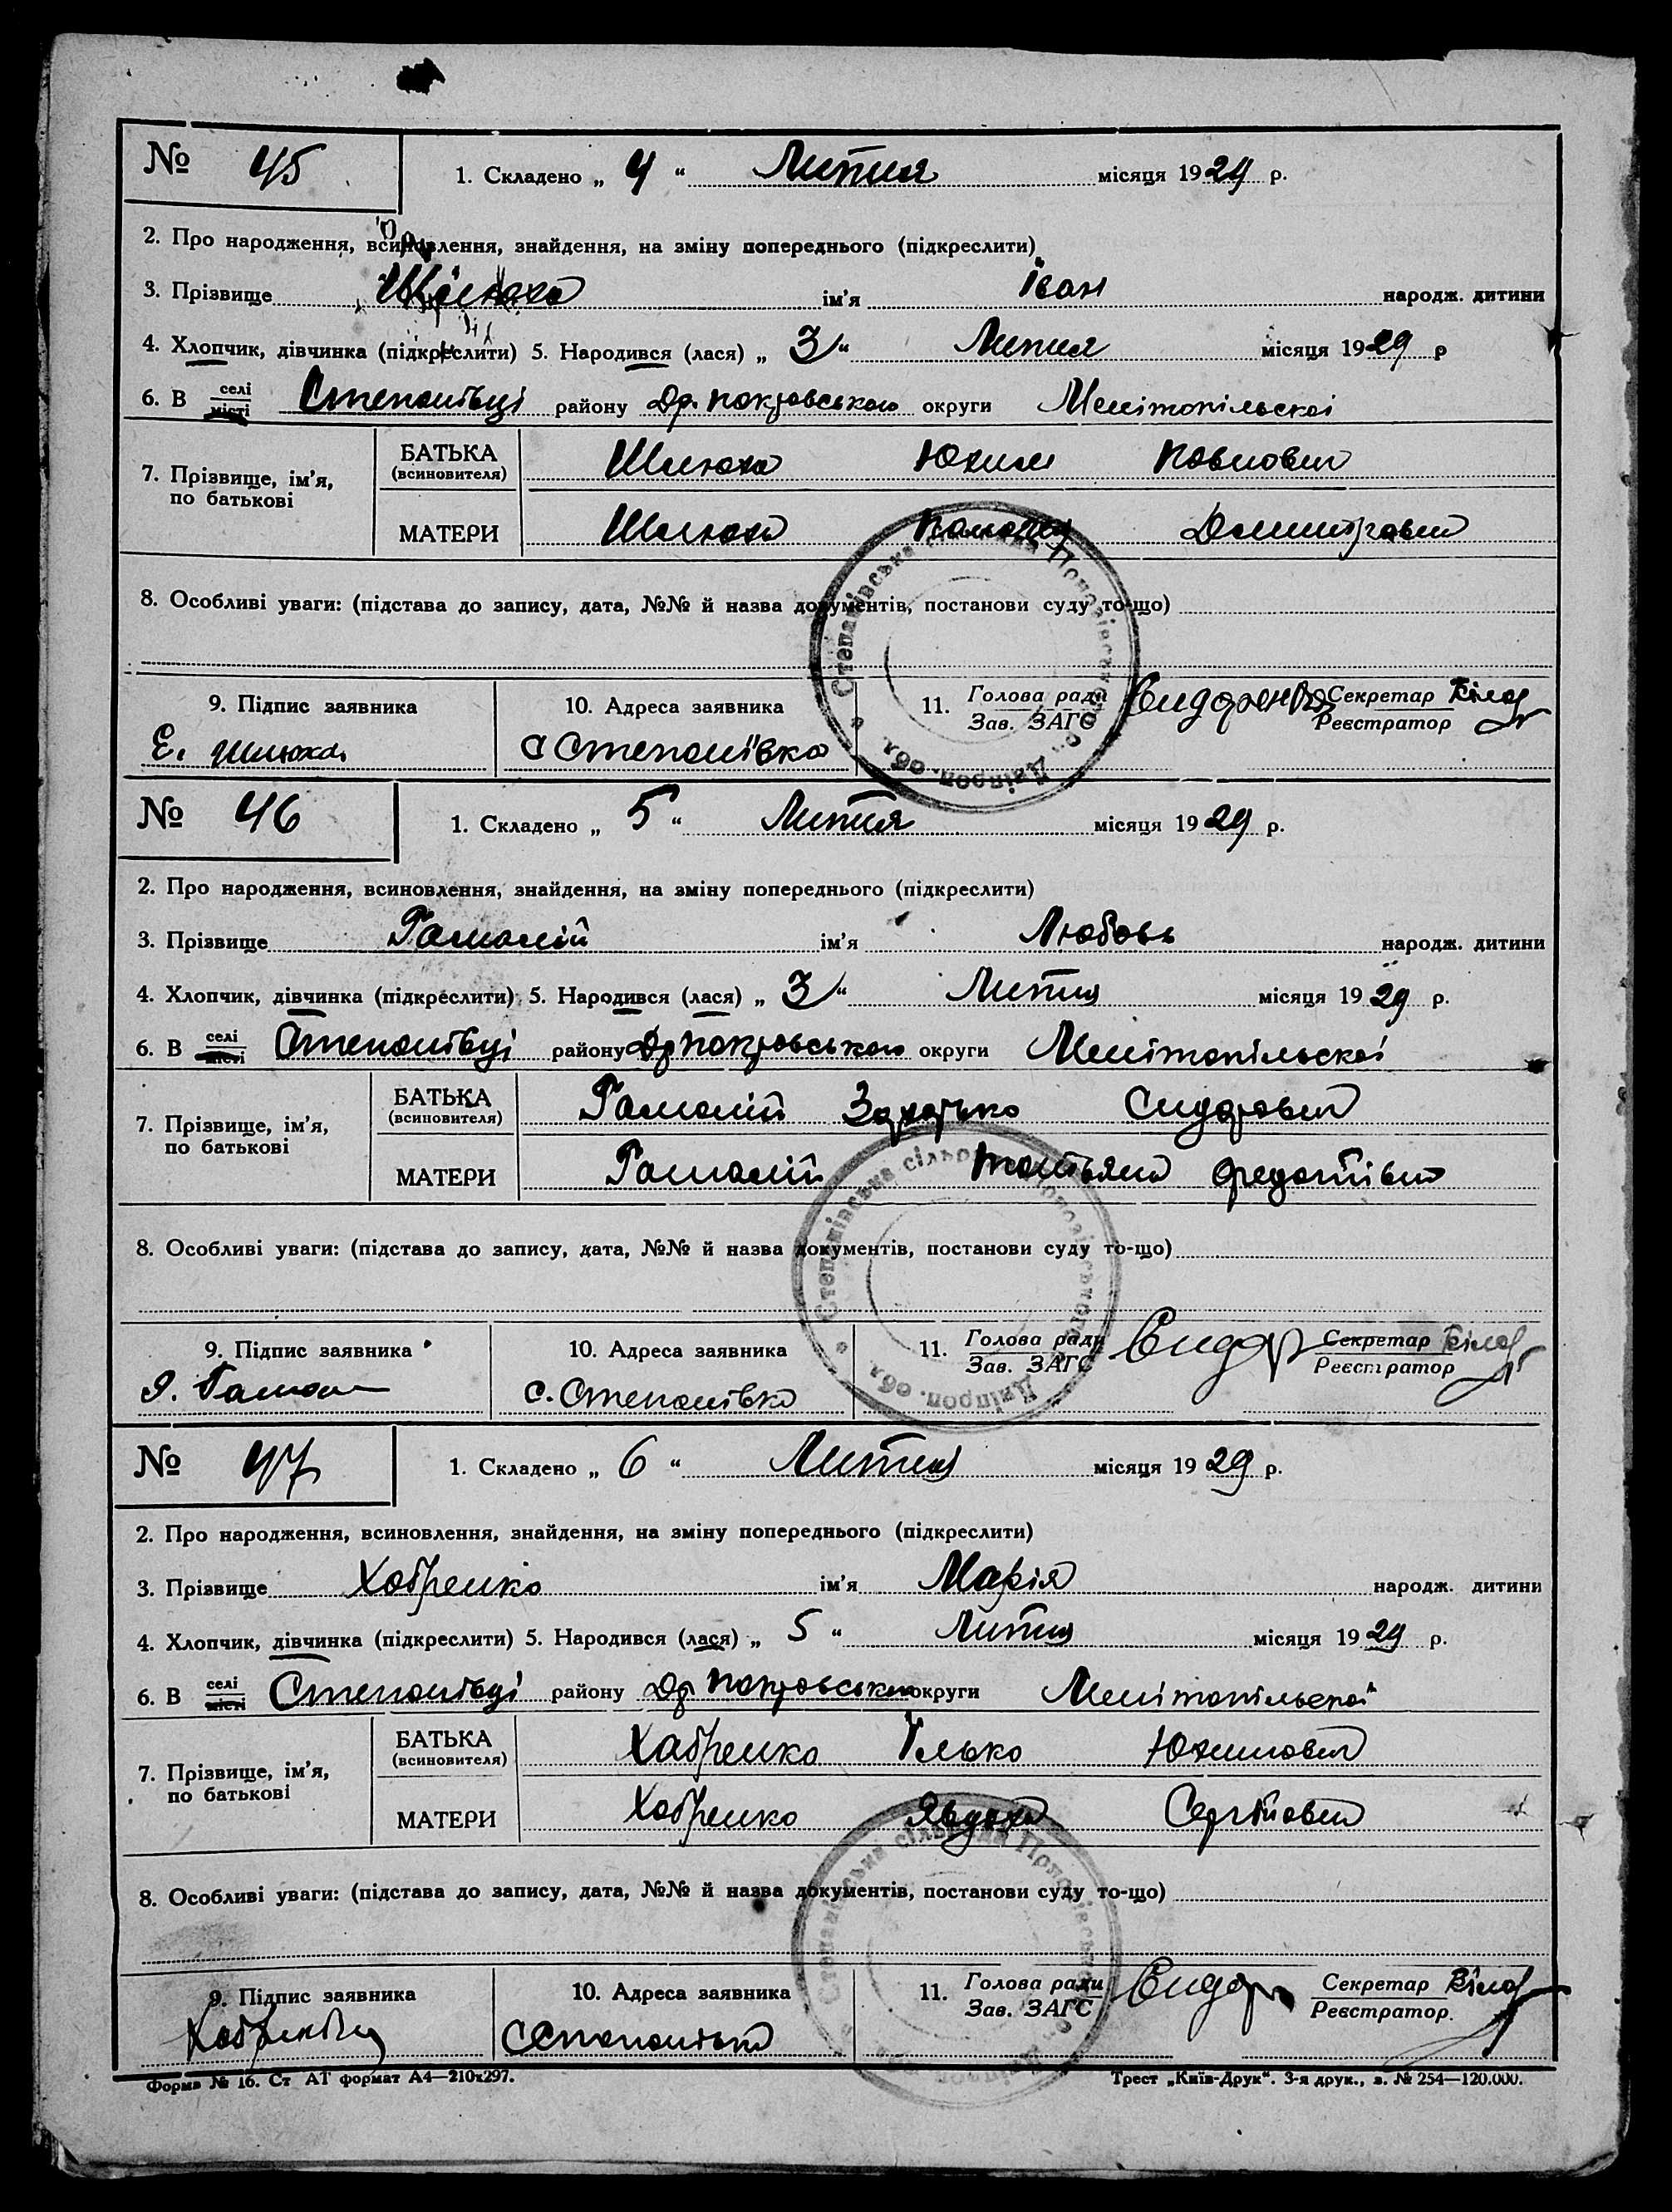 № 45
1. Складено „ 4 “ Липня місяця 1929 р.
2. Про народження, всиновлення, знайдення, на зміну попереднього (підкреслити)
3. Прізвище Шилюха ім’я Іван народж. дитини
4. Хлопчик, дівчинка (підкреслити) 5. Народився (лася) „ 3 “ Липня місяця 1929 р
6. В селі місті Степанівці району Др. покровського округи Мелітопільскоі
7. Прізвище, ім’я, по батькові
БАТЬКА (всиновителя) Шилюха Юхим Павлович
МАТЕРИ Шилюха
8. Особливі уваги: (підстава до запису, дата, №№ й назва документів, постанови суду то-що)
9. Підпис заявника 10. Адреса заявника 11. Голова ради Зав. ЗАГС Секретар Реєстратор
с Степанівка
№ 46
1. Складено „ 5 “ Липня місяця 1929 р.
2. Про народження, всиновлення, знайдення, на зміну попереднього (підкреслити)
3. Прізвище Гамалій ім’я Любовь народж. дитини
4. Хлопчик, дівчинка (підкреслити) 5. Народився (лася) „ 3 “ Липня місяця 1929 р.
6. В селі місті Степанівці району Др покровського округи Мелітопільскоі
7. Прізвище, ім’я, по батькові
БАТЬКА (всиновителя) Гамалій Захарько Сидорович
МАТЕРИ Гамалій Федотівна
8. Особливі уваги: (підстава до запису, дата, №№ й назва документів, постанови суду то-що)
9. Підпис заявника 10. Адреса заявника 11. Голова ради Зав. ЗАГС Секретар Реєстратор
с. Степанівка
№ 47
1. Складено „ 6 “ Липня місяця 1929 р.
2. Про народження, всиновлення, знайдення, на зміну попереднього (підкреслити)
3. Прізвище Хабренко ім’я Марія народж. дитини
4. Хлопчик, дівчинка (підкреслити) 5. Народився (лася) „ 5 “ Липня місяця 1929 р.
6. В селі місті Степанівці району Др покровського округи Мелітопільскоі
7. Прізвище, ім’я, по батькові
БАТЬКА (всиновителя) Хабренко Ілько Юхимович
МАТЕРИ Хабренко Явдоха
8. Особливі уваги: (підстава до запису, дата, №№ й назва документів, постанови суду то-що)
9. Підпис заявника 10. Адреса заявника 11. Голова ради Зав. ЗАГС Секретар Реєстратор.
Форма № 16. Ст АТ формат А4—210х297.
Трест „Київ-Друк“. 3-я друк., з. № 254—120.000.